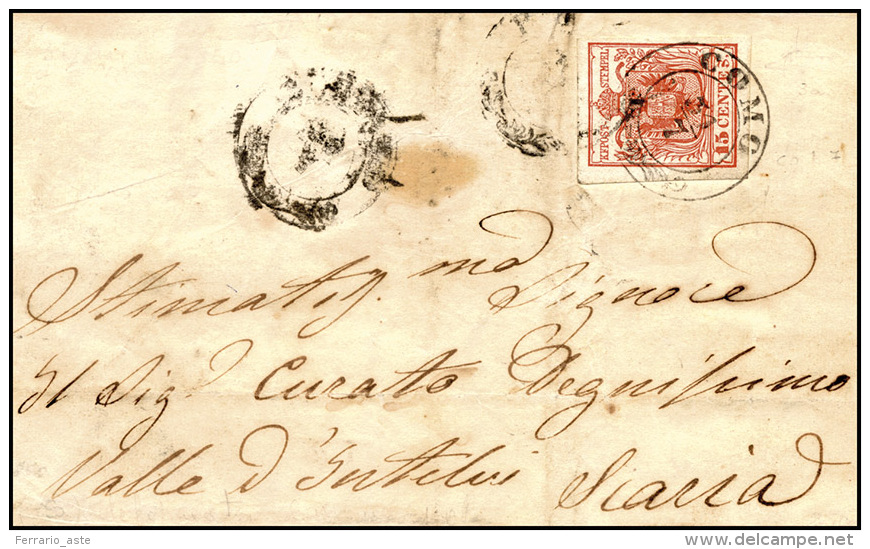 K.K.POST-STEMPEL
15 CENTES.
COMO
Stimatis.mo Signore
Il Sig.r Curato Degnissimo
Valle d'Intelvi Scaria
Ferrario_aste
delcampe.net